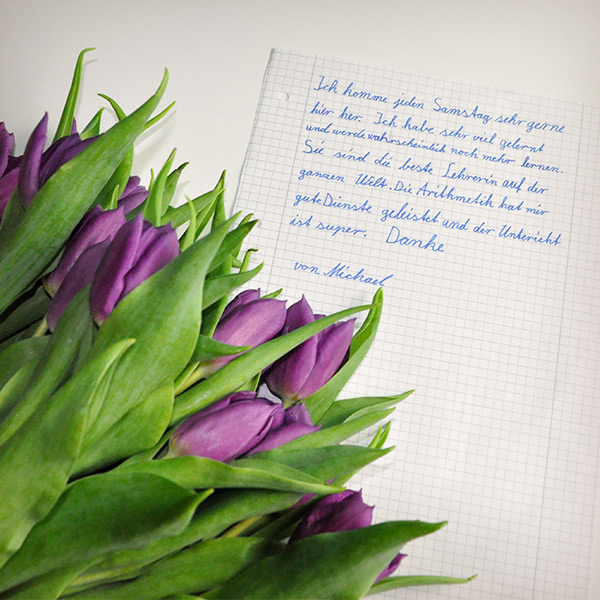 Ich komme jeden Samstag sehr gerne
hier her. Ich habe sehr viel gelernt
und werde wahrscheinlich noch mehr lernen.
Sie sind die beste Lehrerin auf der
ganzen Welt. Die Arithmetik hat mir
gute Dienste geleistet und der Unterricht
ist super. Danke
von Michael